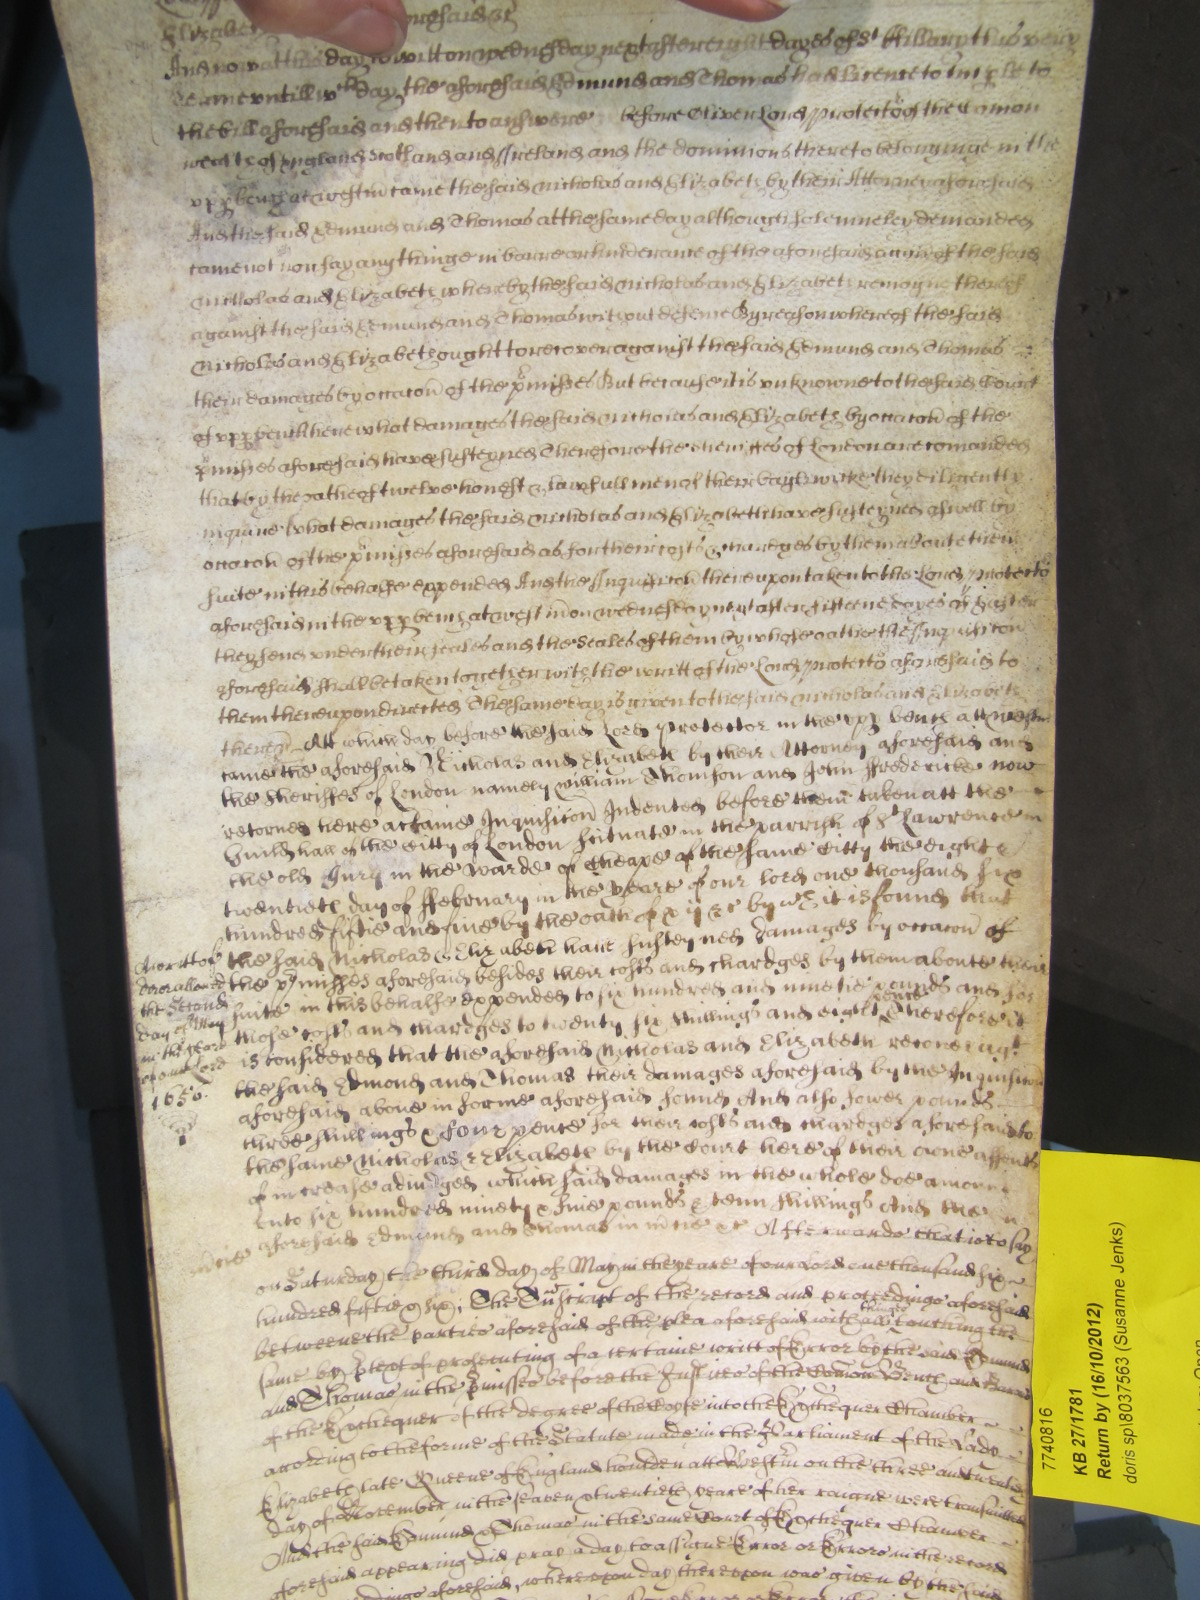 Elizabeth aforesaid &c
And now at this day to witt on wednesday next after eight dayes of St Hillary this very
Terme untill wch day the aforesaid Edmund and Thomas had licence to imple to
the bill aforesaid and then to answere before Oliver Lord Protector of the Comon
wealth of England Scotland and Ireland and the dominions thereto belonginge in the
upp bench at westm came the said Nicholas and Elizabeth by their Attorney aforesaid
And the said Edmund and Thomas at the same day although solemneley demanded
came not nor say any thinge in barre or hinderance of the aforesaid accon of the said
Nicholas and Elizabeth whereby the said Nicholas and Elizabeth remayne thereof
against the said Edmund and Thomas without defence By reason whereof the said
Nicholas and Elizabeth ought to recover against the said Edmund and Thomas
their damages by occacon of the pmisses But because it is unknowne to the said Court
of upp bench here what damages the said Nicholas and Elizabeth by occacon of the
pmisses aforesaid have susteyned Therefore the Sheriffes of London are comanded
that by the oathe of twelve honest & lawfull men of their baylywicke they diligently
inquire what damages the said Nicholas and Elizabeth have susteyned aswell by
occacon of the pmisses aforesaid as for their costs & chardges by them aboute their
suite in this behalfe expended And the Inquisicon thereupon taken to the Lord Protector
aforesaid in the upp bench at westm on wednesday next after fifteene dayes of Easter
they send under their seales and the seales of them by whose oathe the Inquisicon
aforesaid shall be taken together with the writt of the Lord Protector aforesaid to
them thereupon directed The same day is given to the said Nicholas and Elizabeth
there &c Att which day before the said Lord Protector in the upp bench att westm
came the aforesaid Nicholas and Elizabeth by their Attorney aforesaid and
the Sheriffes of London namely William Thomson and John ffredericke now
retorned here a certaine Inquisicon Indented before them taken att the
Guildhall of the Citty of London scituate in the parrish of St Lawrence in
the old Jury in the Warde of Cheape of the same Citty the eight &
twentieth day of ffebruary in the yeare of our lord one thousand six
hundred fiftie and five by the oath of xij &c by wch it is found that
the said Nicholas & Elizabeth have susteyned damages by occacon of
the pmisses aforesaid besides their costs and chardges by them aboute their
suite in this behalfe expended to six hundred and ninetie pounds and for
those costs and chardges to twenty six shillings and eight pence Therefore it
is considered that the aforesaid Nicholas and Elizabeth recover agt
the said Edmond and Thomas their damages aforesaid by the Inquisicon
aforesaid above in forme aforesaid found And also fower pounds
three shillings & four pence for their costs and chardges aforesaid to
the same Nicholas & Elizabeth by the Court here of their owne assent
of increase adiudged which said damages in the whole doe amount
unto six hundred ninety & five pounds & tenn shillings And the
aforesaid Edmund and Thomas in mcie &c Afterwards that is to say
on Saturday the third day of May in the yeare of our Lord one thousand six
hundred fiftie & six, The Transcript of the record and proceedings aforesaid
betweene the parties aforesaid of the plea aforesaid with all things touching the
same by ptext of prosecuting of a certaine writt of Error by the said Edmund
and Thomas in the pmisses before the Justices of the Comon Bench and Barons
of the Exchequer of the degree of the Coyfe into the Exchequer Chamber
according to the forme of the Statute made in the Parliament of the Lady
Elizabeth late Queene of England houlden att Westm on the three and twentieth
day of November in the seaven & twentieth yeare of her raigne were transmitted
And the said Edmund & Thomas in the same Court of Exchequer Chamber
aforesaid appearing did pray a day to assigne Error or Errors in the record
aforesaid, whereupon day thereupon was given by the said
A writt of
Error allowed
the second
day of May
in the yeare
of our Lord
1656
7740816
KB 27/1781
Return by (16/10/2012)
doris sp\8037563 (Susanne Jenks)